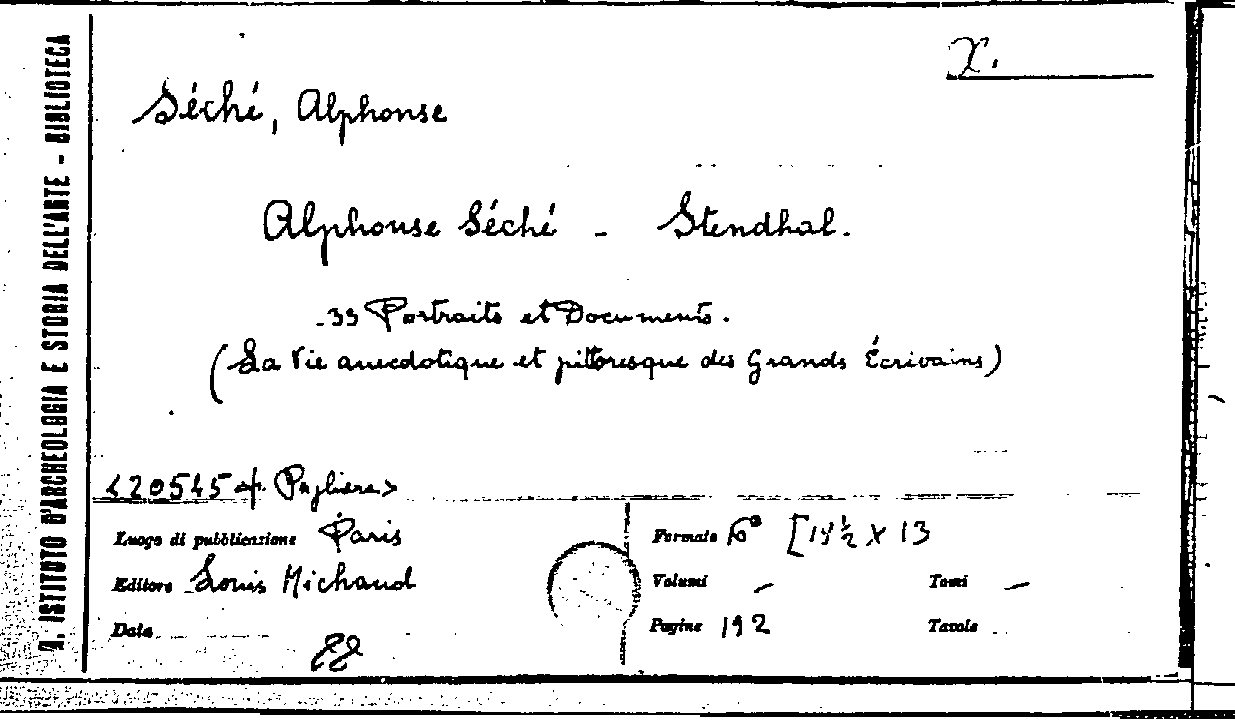 R. ISTITUTO D'ARCHEOLOGIA E STORIA DELL'ARTE - BIBLIOTECA
X.
Séché, Alphonse
Alphonse Séché - Stendhal.
-33 Portraits et Documents.
(La Vie anecdotique et pittoresque des Grands Écrivains)
<20545 Pagliara>
Luogo di pubblicazione Paris
Editore Louis Michaud
Data
Formato 8° [18½ X 13
Volumi - Tomi -
Pagine 192 Tavole